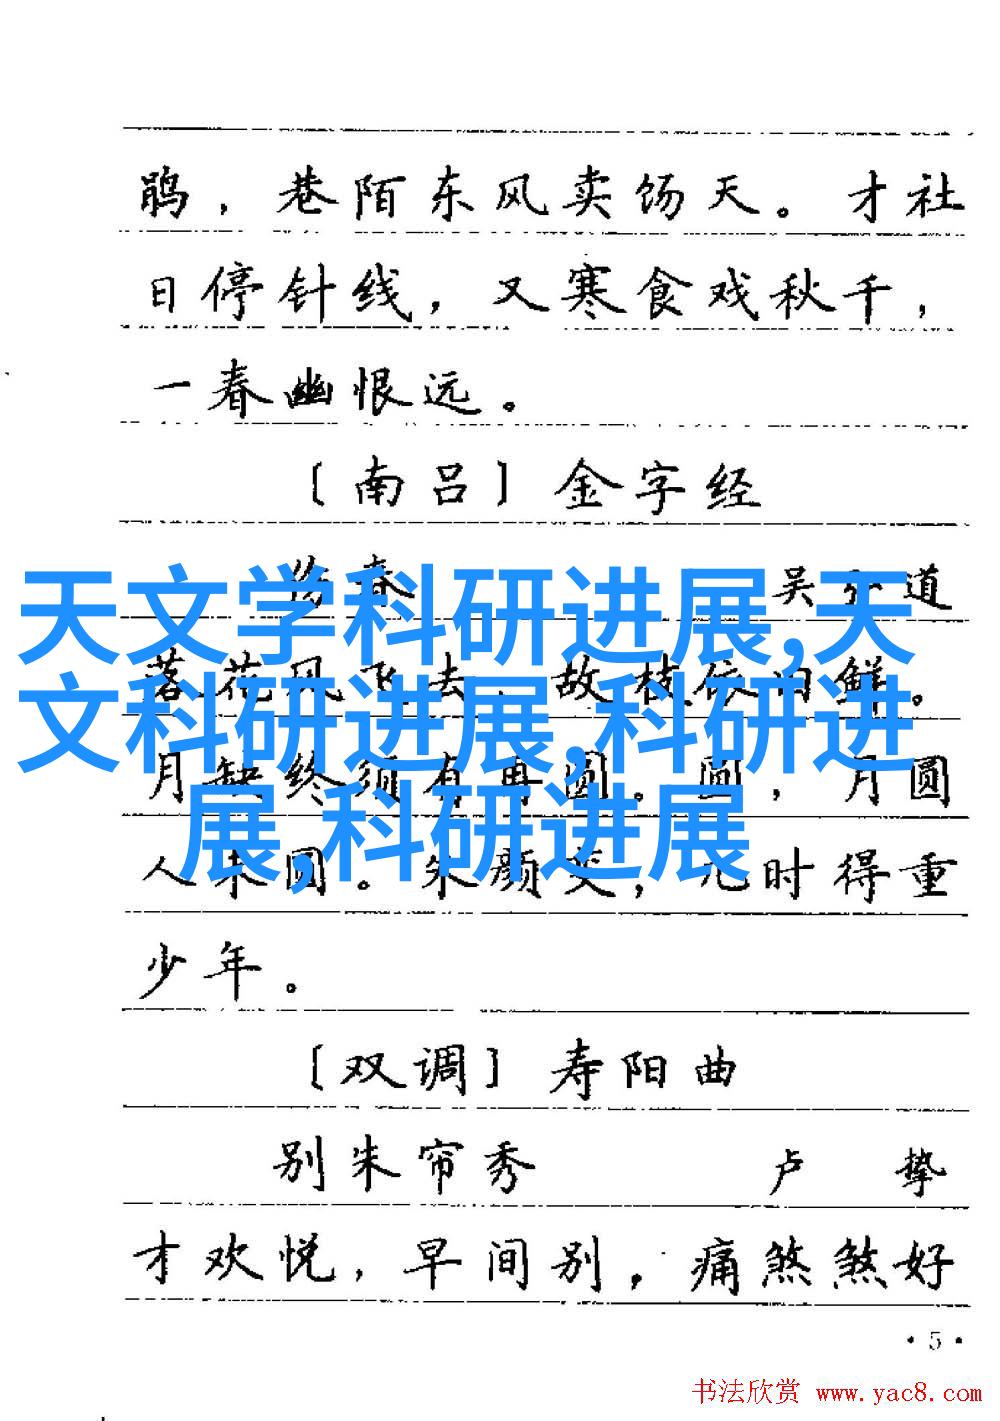 鹃，巷陌东风卖饧天。才社
日停针线，又寒食戏秋千，
一春幽恨远。
〔南吕〕金字经
伤春 吴弘道
天文学科研进展,天
落花风飞去，故枝依旧鲜。
文科研进展,科研进
月缺终须有再圆。圆，月圆
展,科研进展
人未圆。朱颜变，几时得重
少年。
〔双调〕寿阳曲
别朱帘秀 卢挚
才欢悦，早间别，痛煞煞好
·5·
书法欣赏 www.yac8.com